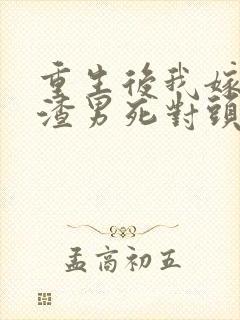 重生後我嫁
渣男死對頭
孟高初五